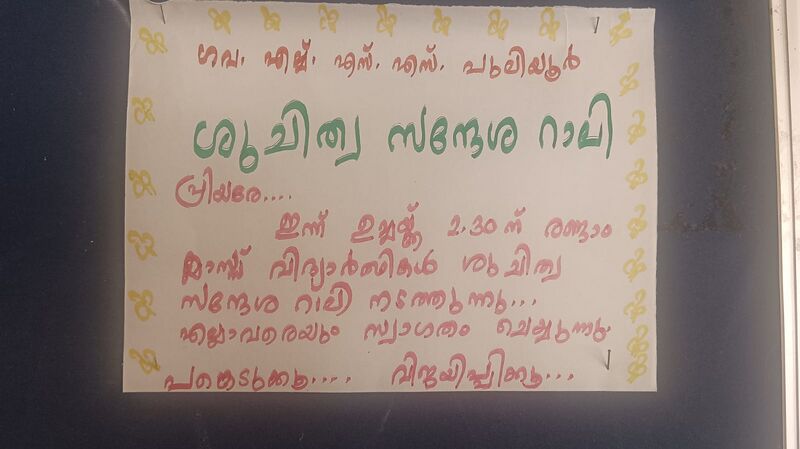 ഗവ. എല്. എസ്. എസ്. പുലിയൂർ
ശുചിത്വ സന്ദേശ റാലി
പ്രിയരേ....
ഇന്ന് ഉച്ചയ്ക്ക് 2.30ന് രണ്ടാം
ക്ലാസ്സ് വിദ്യാർത്ഥികൾ ശുചിത്വ
സന്ദേശ റാലി നടത്തുന്നു...
എല്ലാവരെയും സ്വാഗതം ചെയ്യുന്നു.
പങ്കെടുക്കൂ..... വിജയിപ്പിക്കൂ...